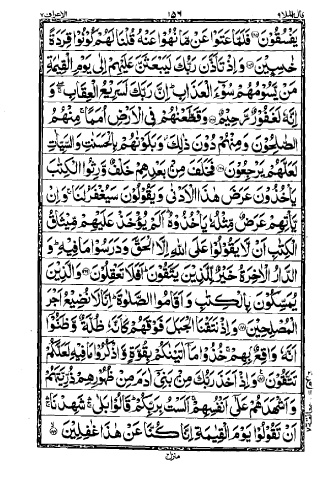 قال الملا ٩ ١٥٦ الاعراف ٧
يَفْسُقُوْنَ فَلَمَّا عَتَوْا عَنْ مَّا نُهُوْا عَنْهُ قُلْنَا لَهُمْ كُوْنُوْا قِرَدَةً
خٰسِـِٕيْنَ وَاِذْ تَاَذَّنَ رَبُّكَ لَيَبْعَثَنَّ عَلَيْهِمْ اِلٰى يَوْمِ الْقِيٰمَةِ
مَنْ يَّسُوْمُهُمْ سُوْٓءَ الْعَذَابِ اِنَّ رَبَّكَ لَسَرِيْعُ الْعِقَابِ وَ
اِنَّهٗ لَغَفُوْرٌ رَّحِيْمٌ وَقَطَّعْنٰهُمْ فِى الْاَرْضِ اُمَمًا مِنْهُمُ
الصّٰلِحُوْنَ وَمِنْهُمْ دُوْنَ ذٰلِكَ وَبَلَوْنٰهُمْ بِالْحَسَنٰتِ وَالسَّيِّاٰتِ
لَعَلَّهُمْ يَرْجِعُوْنَ فَخَلَفَ مِنْۢ بَعْدِهِمْ خَلْفٌ وَّرِثُوا الْكِتٰبَ
يَاْخُذُوْنَ عَرَضَ هٰذَا الْاَدْنٰى وَيَقُوْلُوْنَ سَيُغْفَرُ لَنَا وَاِنْ
يَّاْتِهِمْ عَرَضٌ مِّثْلُهٗ يَاْخُذُوْهُ اَلَمْ يُؤْخَذْ عَلَيْهِمْ مِّيْثَاقُ
الْكِتٰبِ اَنْ لَّا يَقُوْلُوْا عَلَى اللّٰهِ اِلَّا الْحَقَّ وَدَرَسُوْا مَا فِيْهِ وَ
الدَّارُ الْاٰخِرَةُ خَيْرٌ لِّلَّذِيْنَ يَتَّقُوْنَ اَفَلَا تَعْقِلُوْنَ وَالَّذِيْنَ
يُمَسِّكُوْنَ بِالْكِتٰبِ وَاَقَامُوا الصَّلٰوةَ اِنَّا لَا نُضِيْعُ اَجْرَ
الْمُصْلِحِيْنَ وَاِذْ نَتَقْنَا الْجَبَلَ فَوْقَهُمْ كَاَنَّهٗ ظُلَّةٌ وَّظَنُّوْٓا
اَنَّهٗ وَاقِعٌۢ بِهِمْ خُذُوْا مَآ اٰتَيْنٰكُمْ بِقُوَّةٍ وَّاذْكُرُوْا مَا فِيْهِ لَعَلَّكُمْ
تَتَّقُوْنَ وَاِذْ اَخَذَ رَبُّكَ مِنْۢ بَنِىْٓ اٰدَمَ مِنْ ظُهُوْرِهِمْ ذُرِّيَّتَهُمْ
وَاَشْهَدَهُمْ عَلٰٓى اَنْفُسِهِمْ اَلَسْتُ بِرَبِّكُمْ قَالُوْا بَلٰى شَهِدْنَا
اَنْ تَقُوْلُوْا يَوْمَ الْقِيٰمَةِ اِنَّا كُنَّا عَنْ هٰذَا غٰفِلِيْنَ
منزل